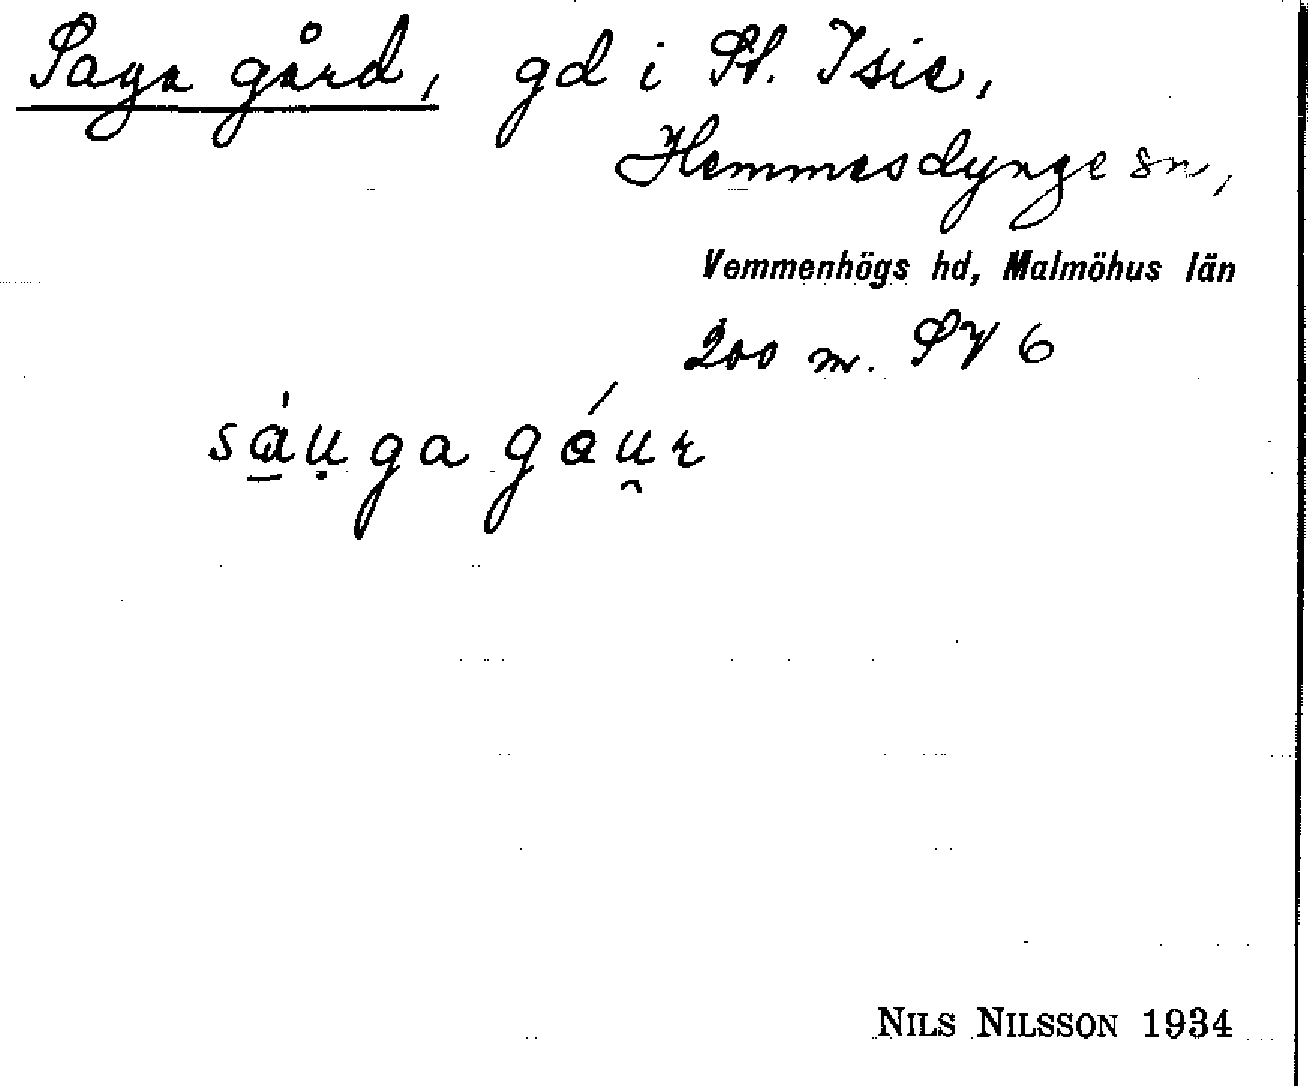 Saga gård, gd i St. Isie,
Hemmesdynge sn,
Vemmenhögs hd, Malmöhus län
200 m. SV 6
sáu̩ga góu̯r
NILS NILSSON 1934